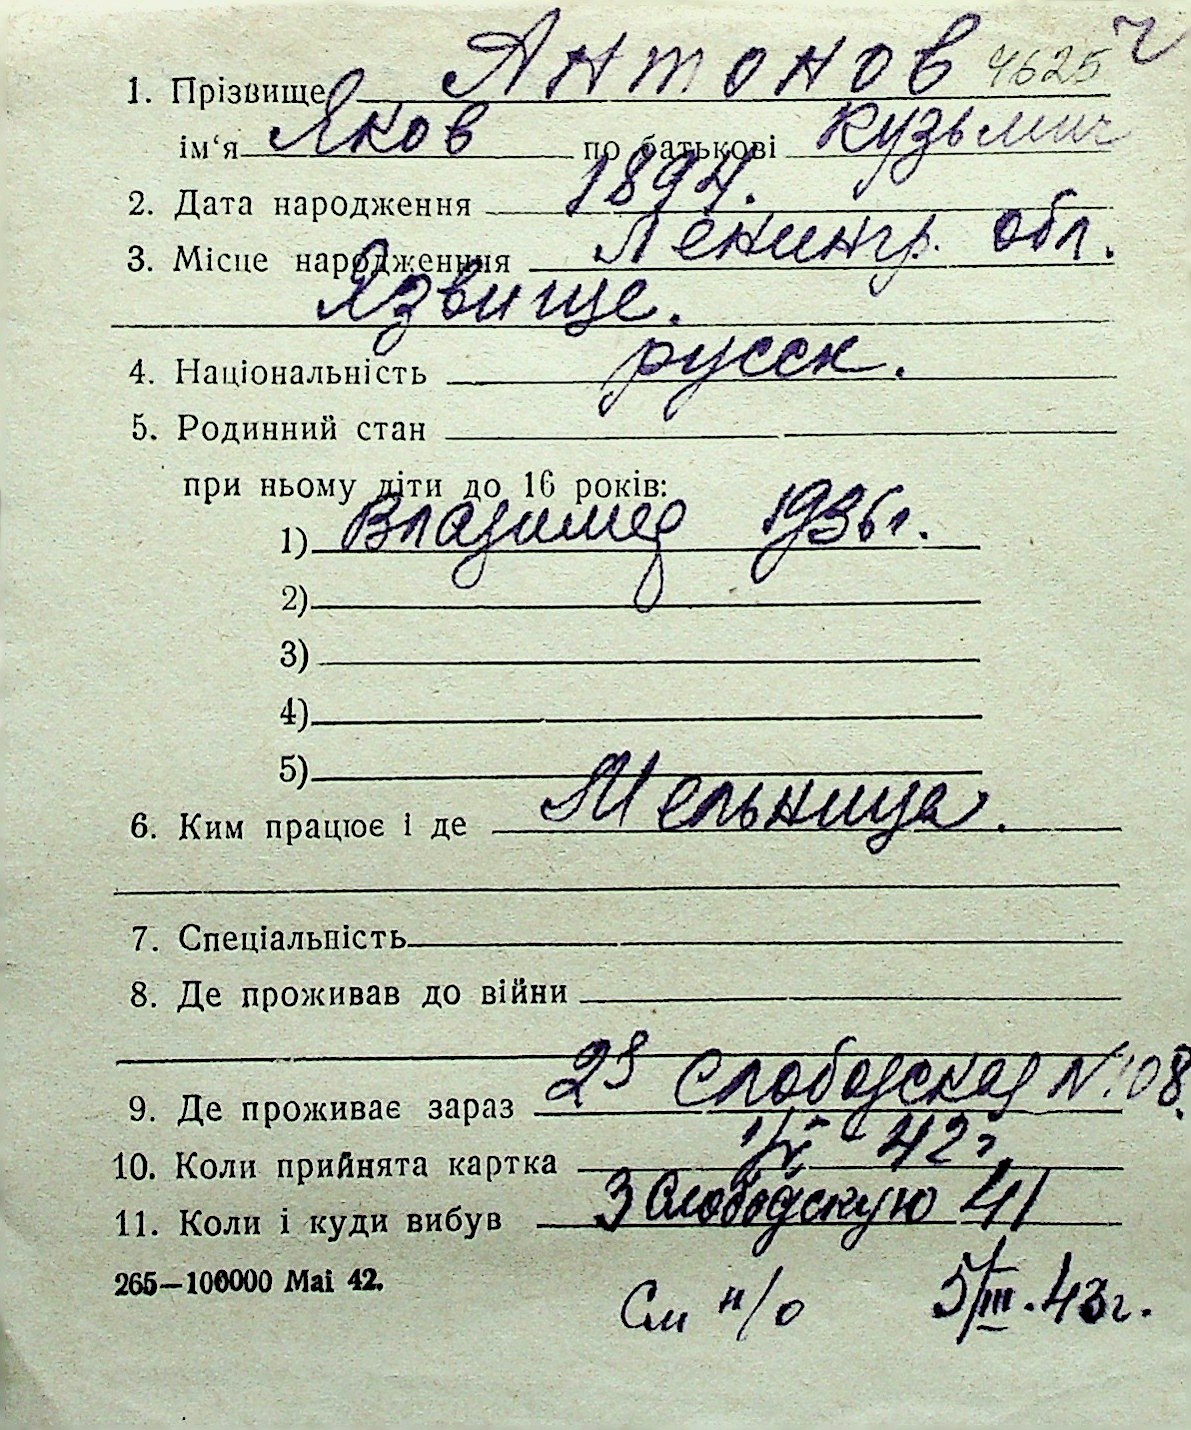 1. Прізвище Антонов 4625
ім‘я Яков по батькові Кузьмич
2. Дата народження 1894.
3. Місце народженння Ленингр. обл.
Язвище.
4. Національність русск.
5. Родинний стан
при ньому діти до 16 років:
1) Владимер 1936г.
2)
3)
4)
5)
6. Ким працює і де Мельница.
7. Спеціальність
8. Де проживав до війни
9. Де проживає зараз 2я Слободская № 108.
10. Коли прийнята картка 42г.
11. Коли і куди вибув 3 Слободскую 41
265—100000 Mai 42.
См н/о 5/III.43г.